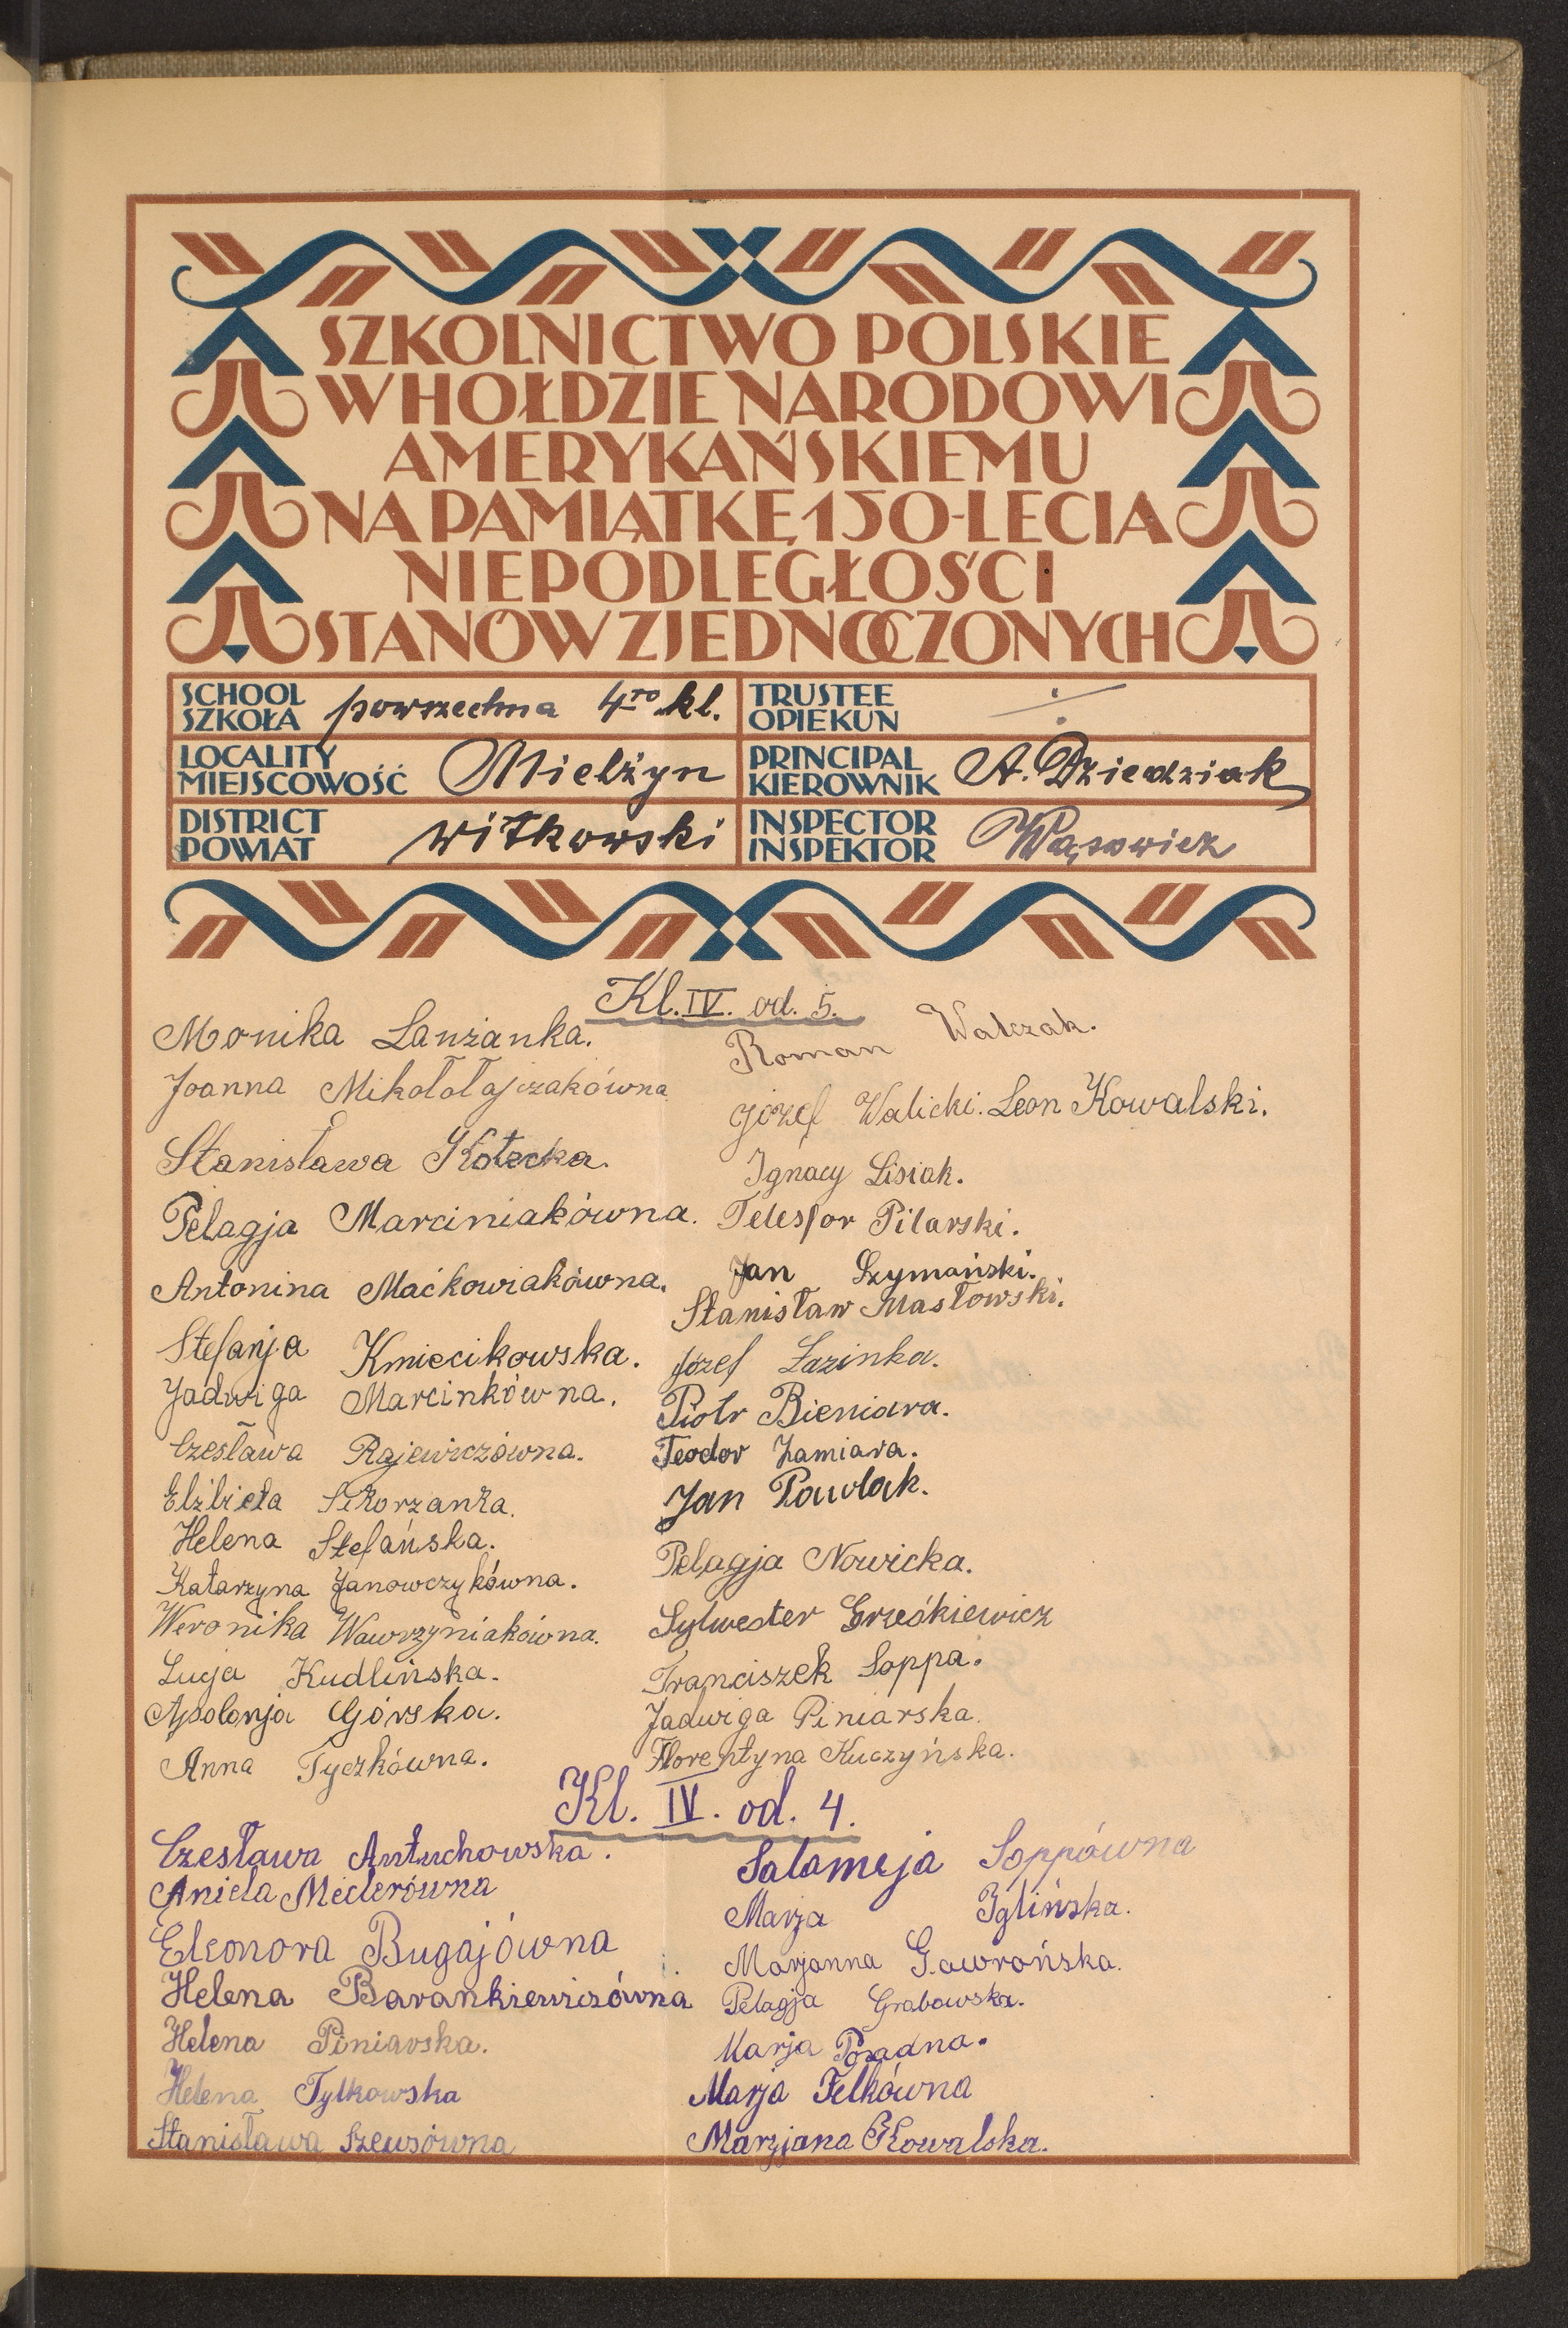 SZKOLNICTWO POLSKIE
W HOŁDZIE NARODOWI
AMERYKAŃSKIEMU
NA PAMIĄTKĘ 150-LECIA
NIEPODLEGŁOŚCI
STANÓW ZJEDNOCZONYCH
SCHOOL
SZKOŁA powszechna 4ro kl.
TRUSTEE
OPIEKUN
LOCALITY
MIEJSCOWOŚĆ Mielżyn
PRINCIPAL
KIEROWNIK A. Dziedziak
DISTRICT
POWIAT witkowski
INSPECTOR
INSPEKTOR Wąsowicz
Kl. IV. od. 5.
Monika Lanżanka.
Joanna Mikołołajczakówna
Stanisława Kotecka.
Pelagja Marciniakówna.
Antonina Maćkowiakówna.
Stefanja Kmiecikowska.
Jadwiga Marcinkówna.
Czesława Rajewiczówna.
Elżbieta Sikorzanka.
Helena Stefańska.
Katarzyna Janowczykówna.
Weronika Wawrzyniakówna.
Lucja Kudlińska.
Apolonja Górska.
Anna Tyczkówna.
Roman Walczak.
Józef Walicki. Leon Kowalski.
Ignacy Lisiak.
Telesfor Pilarski.
Jan Szymański.
Stanisław Masłowski.
Józef Łazinka.
Piotr Bieniara.
Teodor Zamiara.
Jan Pawlak.
Pelagja Nowicka.
Sylwester Grześkiewicz
Franciszek Soppa.
Jadwiga Piniarska.
Florentyna Kuczyńska.
Kl. IV. od. 4.
Czesława Antuchowska.
Aniela Meclerówna
Eleonora Bugajówna
Helena Barankiewiczówna
Helena Piniarska.
Helena Tylkowska
Stanisława Szewsówna
Salameja Soppówna
Marja Iglińska.
Marjanna Gawrońska.
Pelagja Grabowska.
Marja Posadna.
Marja Felkówna
Marzjana Kowalska.